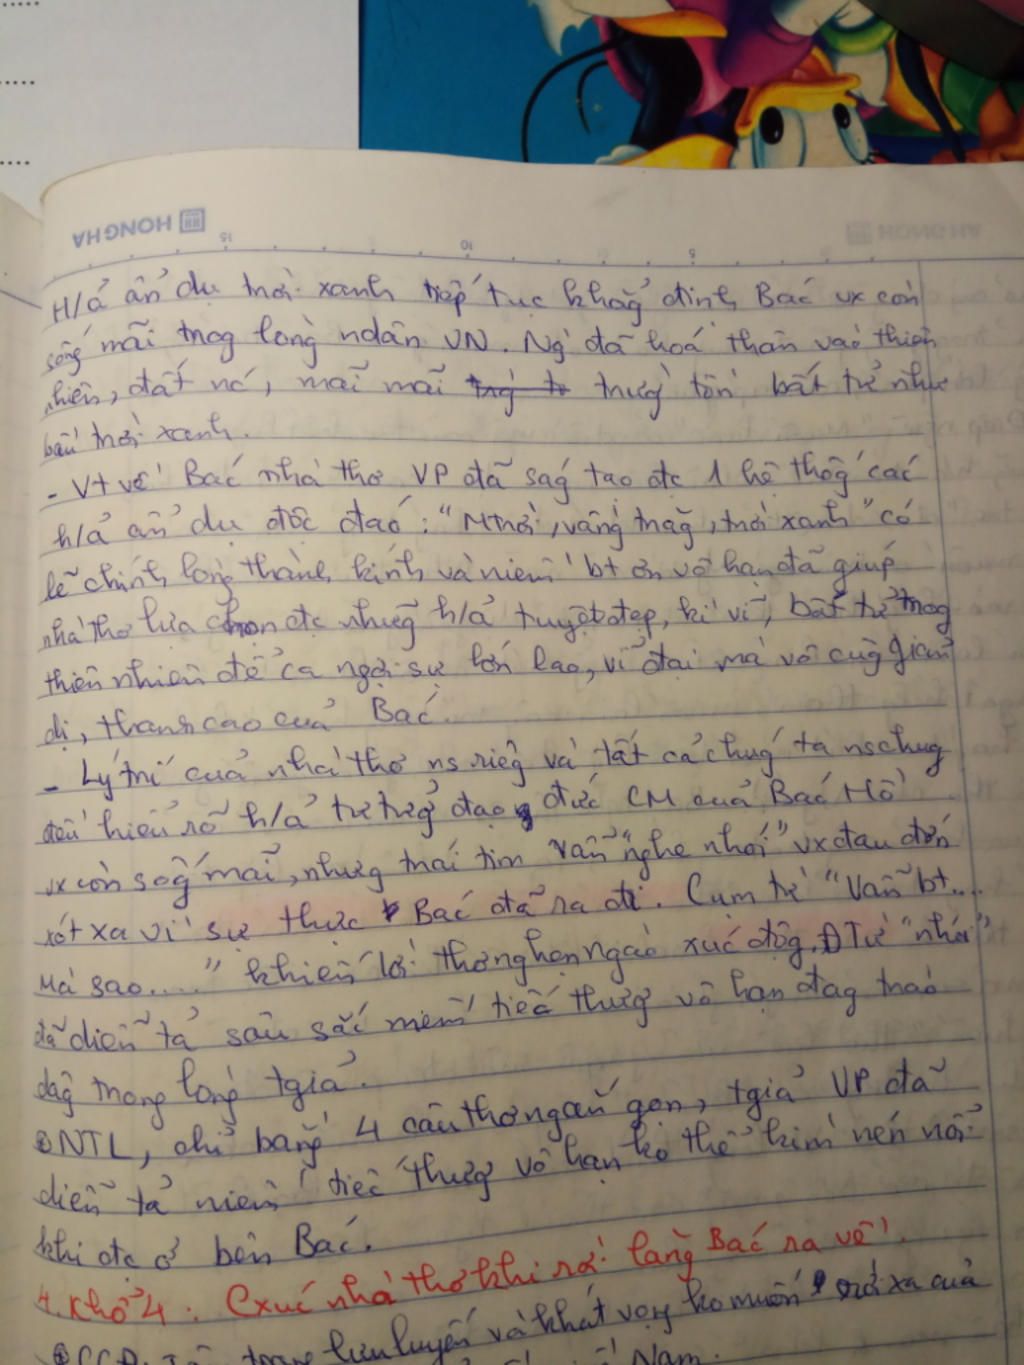 HONG HA
15 10 5
H/ả ẩn dụ trời xanh tiếp tục khẳg định Bác vx còn
sốg mãi trog lòng ndân VN. Ng` đã hoá thân vào thiên
nhiên, đất nc', mãi mãi trườg tồn bất tử như
bầu trời xanh.
- Vt về Bác nhà thơ VP đã ság tạo đc 1 hệ thốg các
h/ả ẩn dụ độc đáo: "Mtrời, vầng trăg, trời xanh" có
lẽ chính lòng thành kính và niềm bt ơn vô hạn đã giúp
nhà thơ lựa chọn đc nhữg h/ả tuyệt đẹp, kì vĩ, bất tử trog
thiên nhiên để ca ngợi sự lớn lao, vĩ đại mà vô cùg giản
dị, thanh cao của Bác.
- Lý trí của nhà thơ ns riêg và tất cả chúg ta ns chug
đều hiểu rõ h/ả tư tưởg đạo đức CM của Bác Hồ
vx còn sốg mãi, nhưg trái tim vẫn "nghe nhói" vx đau đớn
xót xa vì sự thực Bác đã ra đi. Cụm từ "Vẫn bt....
Mà sao....." khiến lời thơ nghẹn ngào xúc độg. ĐTừ "nhói"
đã diễn tả sâu sắc niềm tiếc thươg vô hạn đag trào
dâg trong lòng tgiả.
NTL, chỉ bằng 4 câu thơ ngắn gọn, tgiả VP đã
diễn tả niềm tiếc thươg vô hạn ko thể kìm nén nổi
khi đc ở bên Bác.
4. Khổ 4: Cxúc nhà thơ khi rời lăng Bác ra về.
trạng lưu luyến và khát vọng ko muốn rời xa của
Nam.